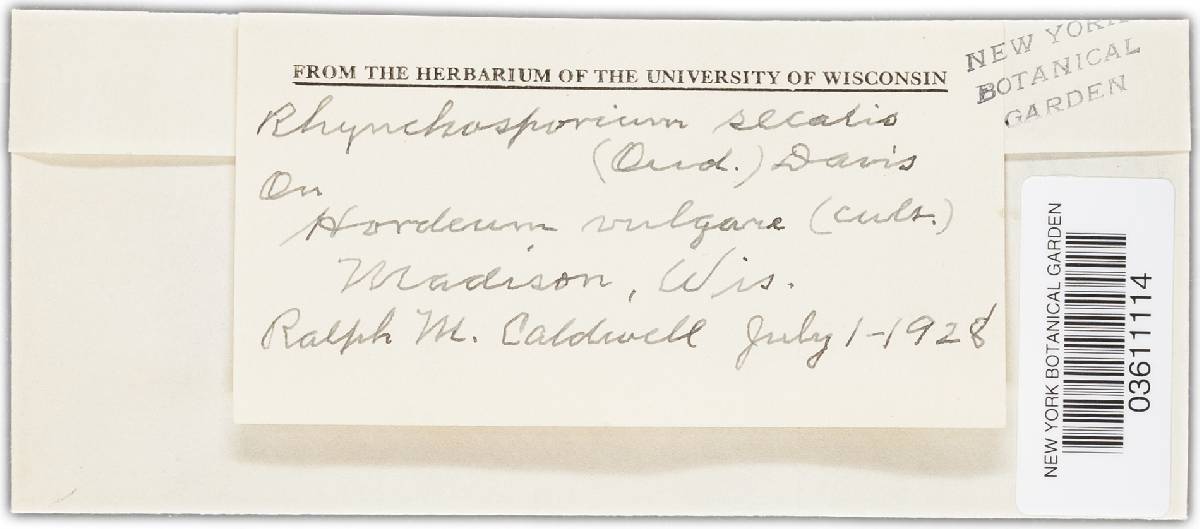 FROM THE HERBARIUM OF THE UNIVERSITY OF WISCONSIN
NEW YORK
BOTANICAL
GARDEN
Rhynchosporium secalis
(Oud.) Davis
On
Hordeum vulgare (cult.)
Madison, Wis.
Ralph M. Caldwell July 1-1928
NEW YORK BOTANICAL GARDEN
03611114